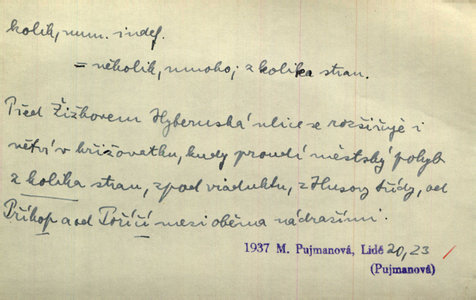 kolik, num. indef.
= několik, mnoho; z kolika stran.
Před Žižkovem Hybernská ulice se rozšiřuje i
větví v křižovatku, kudy proudí městský pohyb
z kolika stran, zpod viaduktu, z Husovy třídy, od
Příkop a od Poříčí mezi oběma nádražími.
1937 M. Pujmanová, Lidé 20, 23
(Pujmanová)